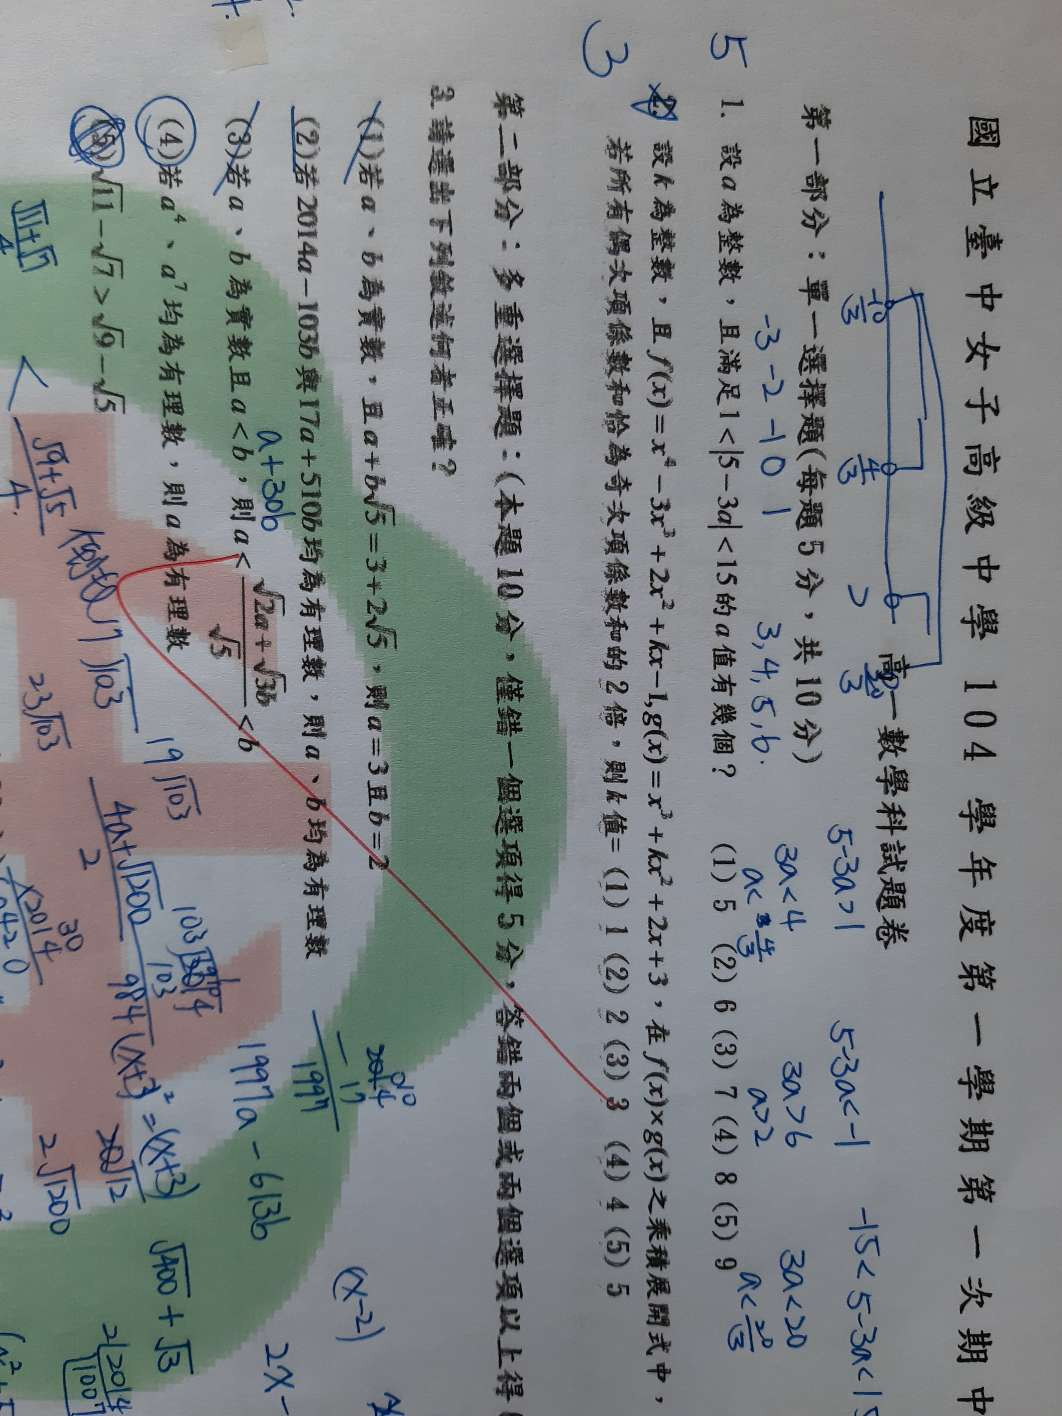 國立臺中女子高級中學 104 學年度第一學期第一次期中
高一數學科試題卷
第一部分：單一選擇題(每題5分，共10分)
-10/3
4/3
2
20/3
5-3a>1
5-3a<-1
-15<5-3a<15
3a<4
3a>6
3a<20
a<4/3
a>2
a<20/3
-3 -2 -1 0 1
3,4,5,6.
5
1. 設a為整數，且滿足1<|5-3a|<15的a值有幾個？ (1) 5 (2) 6 (3) 7 (4) 8 (5) 9
3
2. 設k為整數，且f(x)=x⁴-3x³+2x²+kx-1,g(x)=x³+kx²+2x+3，在f(x)×g(x)之乘積展開式中，
若所有偶次項係數和恰為奇次項係數和的2倍，則k值= (1) 1 (2) 2 (3) 3 (4) 4 (5) 5
第二部分：多重選擇題：(本題10分，僅錯一個選項得5分，答錯兩個或兩個選項以上得
3. 請選出下列敘述何者正確？
(1)若a、b為實數，且a+b√5=3+2√5，則a=3且b=2
(2)若2014a-103b與17a+510b均為有理數，則a、b均為有理數
a+30b
(3)若a、b為實數且a<b，則a<(√2a+√3b)/√5<b
(4)若a⁴、a⁷均為有理數，則a為有理數
(5)√11-√7>√9-√5
2014
-17
1997
1997a-613b
(x-2)
2x-
17√103
19√103
23√103
103
2014
(x+3)²=(x+3)
√400+√3
4a+√1200
2
984
2√1200
20√12
2 2014
1007
30
√11+√7
4
<
√9+√5
4